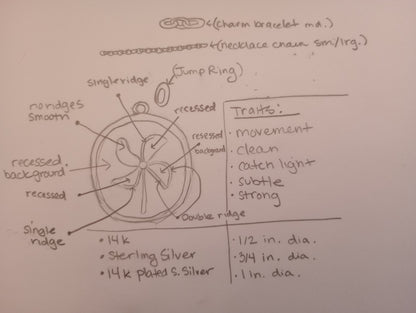 (charm bracelet md.)
(necklace chain sm/lrg.)
(Jump Ring)
single ridge
no ridges
smooth
recessed
recessed
background
recessed
background
recessed
single
ridge
Double ridge
Traits:
• movement
• clean
• catch light
• subtle
• strong
• 14k
• Sterling Silver
• 14k plated S. Silver
• 1/2 in. dia.
• 3/4 in. dia.
• 1 in. dia.